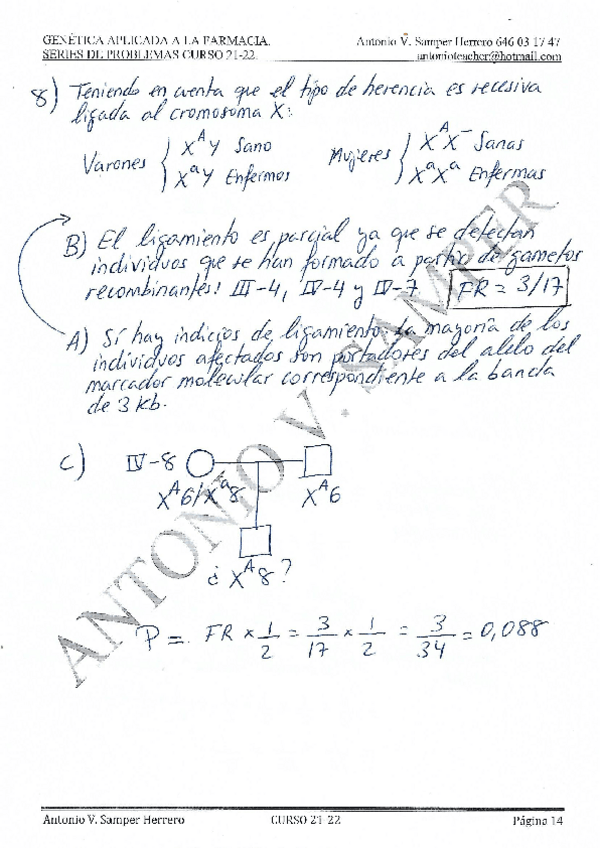 GENÉTICA APLICADA A LA FARMACIA.
Antonio V. Samper Herrero 646 03 17 47
SERIES DE PROBLEMAS CURSO 21-22.
antonioteacher@hotmail.com
8) Teniendo en cuenta que el tipo de herencia es recesiva
ligada al cromosoma X:
Varones { X^A Y Sano
X^a Y Enfermos
Mujeres { X^A X^- Sanas
X^a X^a Enfermas
B) El ligamiento es parcial ya que se detectan
individuos que se han formado a partir de gametos
recombinantes: III-4, IV-4 y IV-7. FR = 3/17
A) Sí hay indicios de ligamiento. La mayoría de los
individuos afectados son portadores del alelo del
marcador molecular correspondiente a la banda
de 3 Kb.
C) IV-8
X^A 6/X^a 8 X^A 6
¿ X^A 8 ?
P = FR × 1/2 = 3/17 × 1/2 = 3/34 = 0,088
ANTONIO V. SAMPER
Antonio V. Samper Herrero CURSO 21-22 Página 14